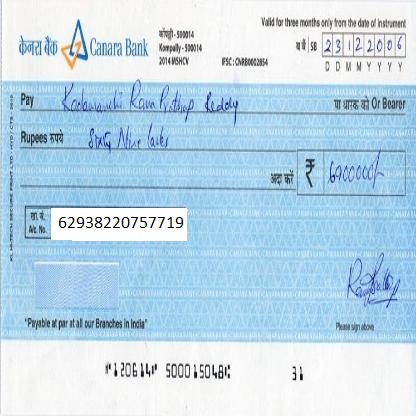 केनरा बैंक Canara Bank
कोंपल्ली - 500014
Kompally - 500014
2014 MSHCV
IFSC : CNRB0002854
Valid for three months only from the date of instrument
SB 23122006
D D M M Y Y Y Y
Pay Rava Prathap Reddy या धारक को Or Bearer
Rupees रुपये Sixty Nine lacks
अदा करें ₹ 6900000/-
खा. सं.
A/c. No. 62938220757719
"Payable at par at all our Branches in India"
Please sign above
⑈120614⑈ 500015048⑆ 31